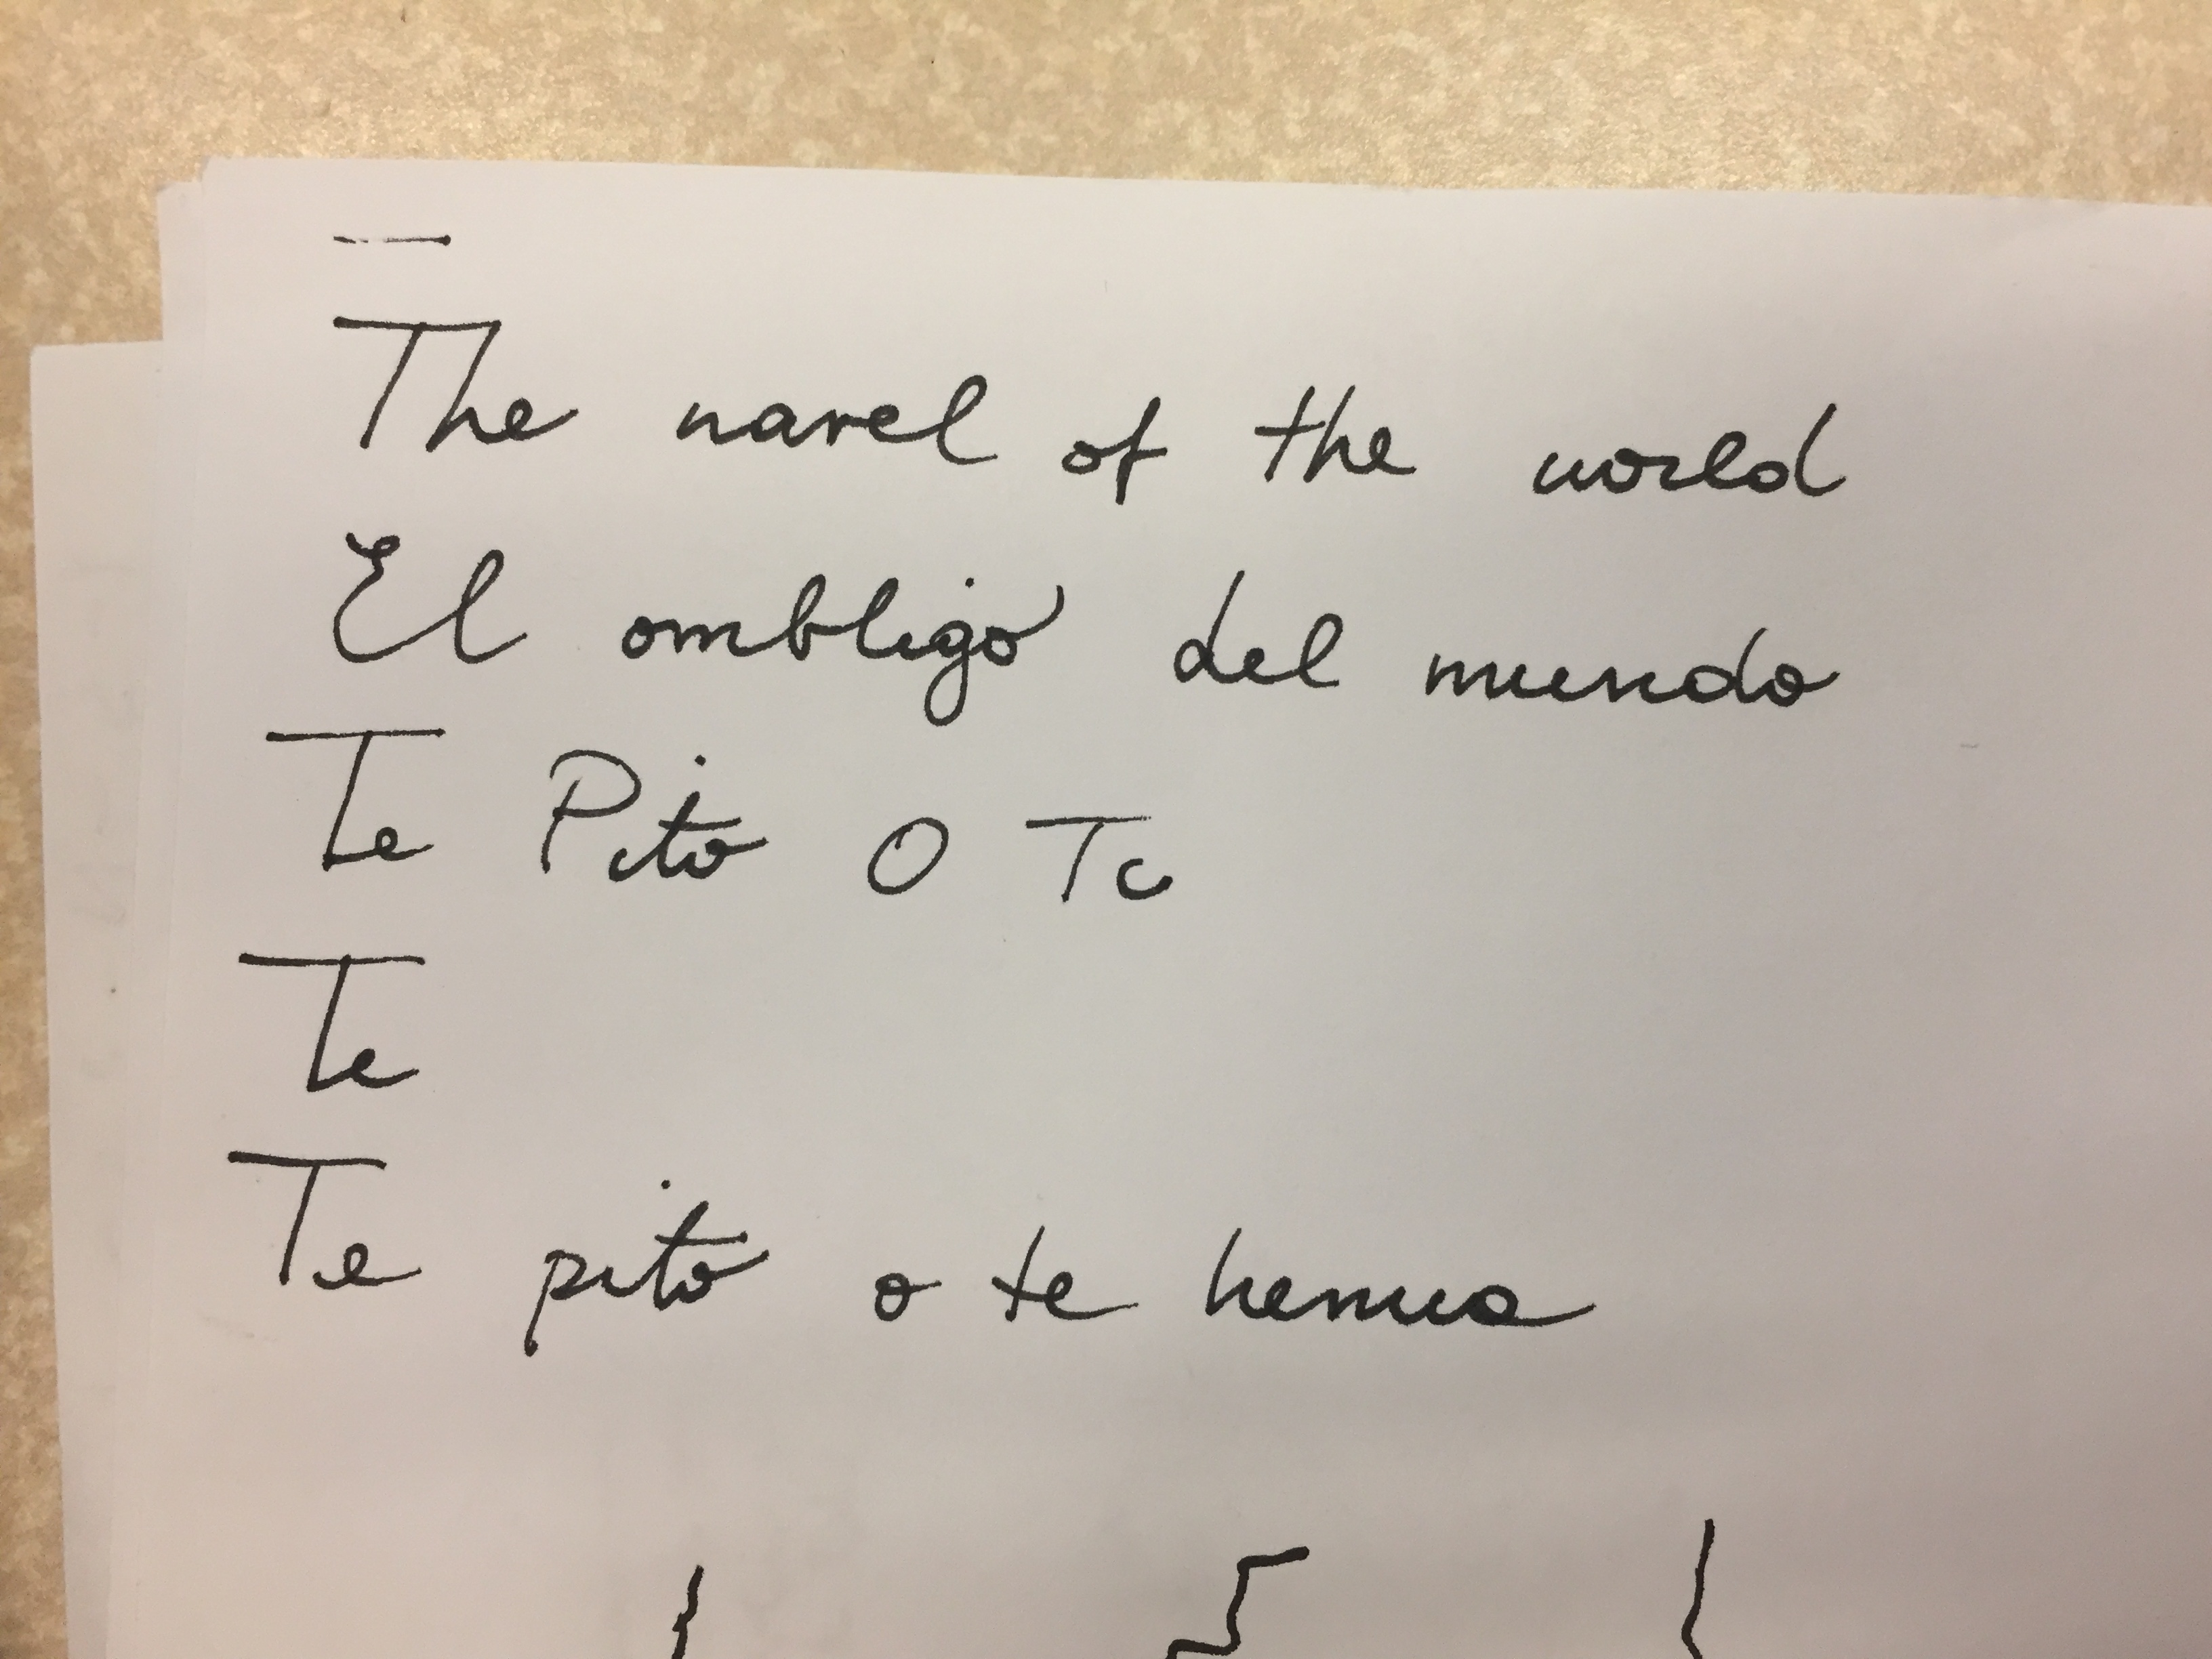 The navel of the world
El ombligo del mundo
Te Pito O Te
Te
Te pito o te henua